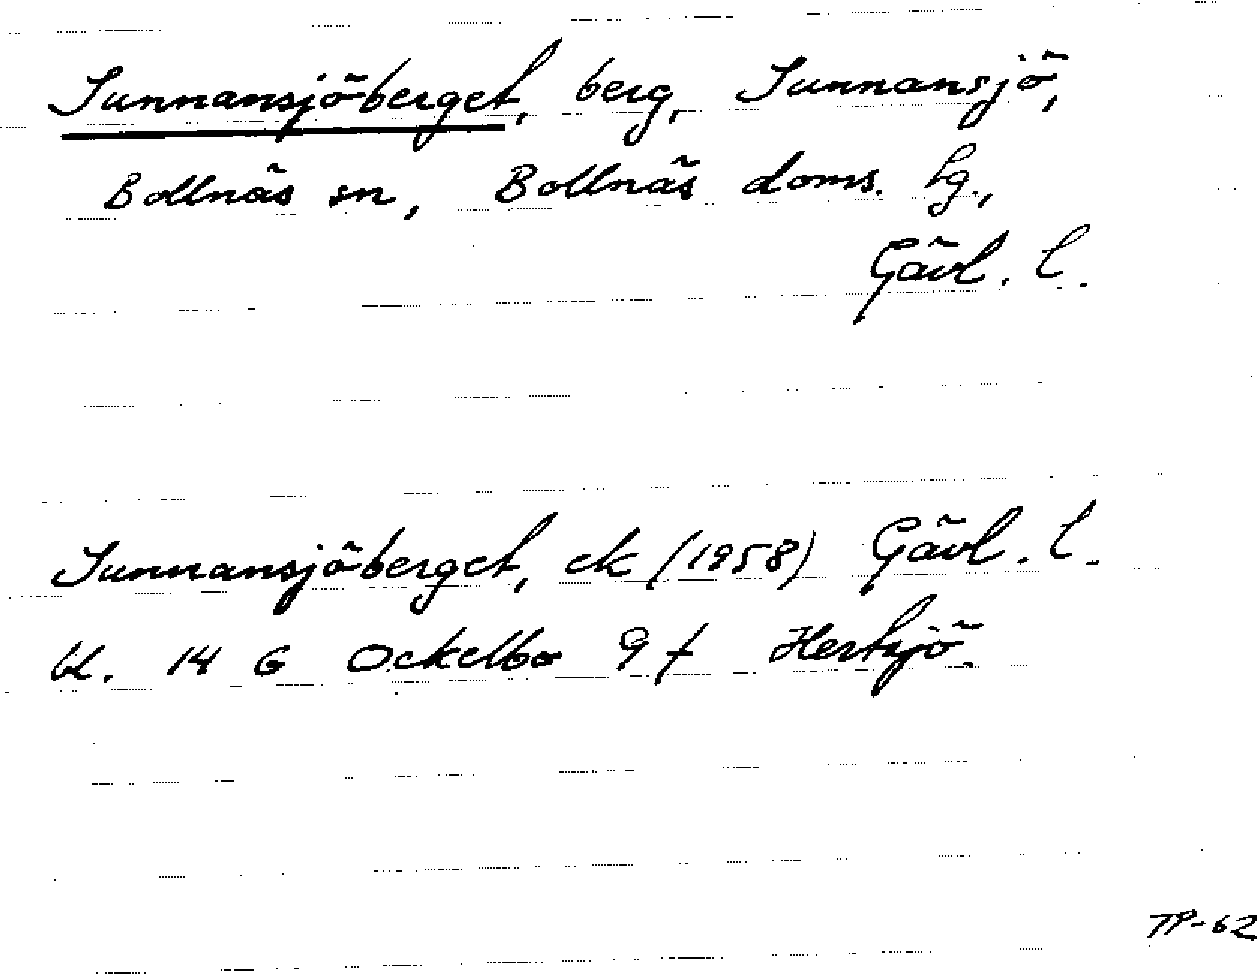 Sunnansjöberget, berg, Sunnansjö,
Bollnäs sn, Bollnäs doms. hg.,
Gävl. l.
Sunnansjöberget, ek (1958) Gävl. l.
bl. 14 G Ockelbo 9 f Hertsjö.
TP-62